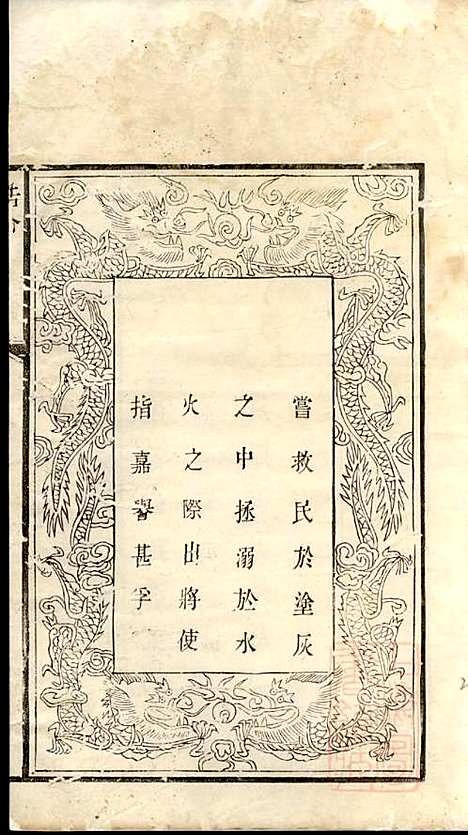 嘗救民於塗灰
之中拯溺於水
火之際出將使
指嘉譽甚孚